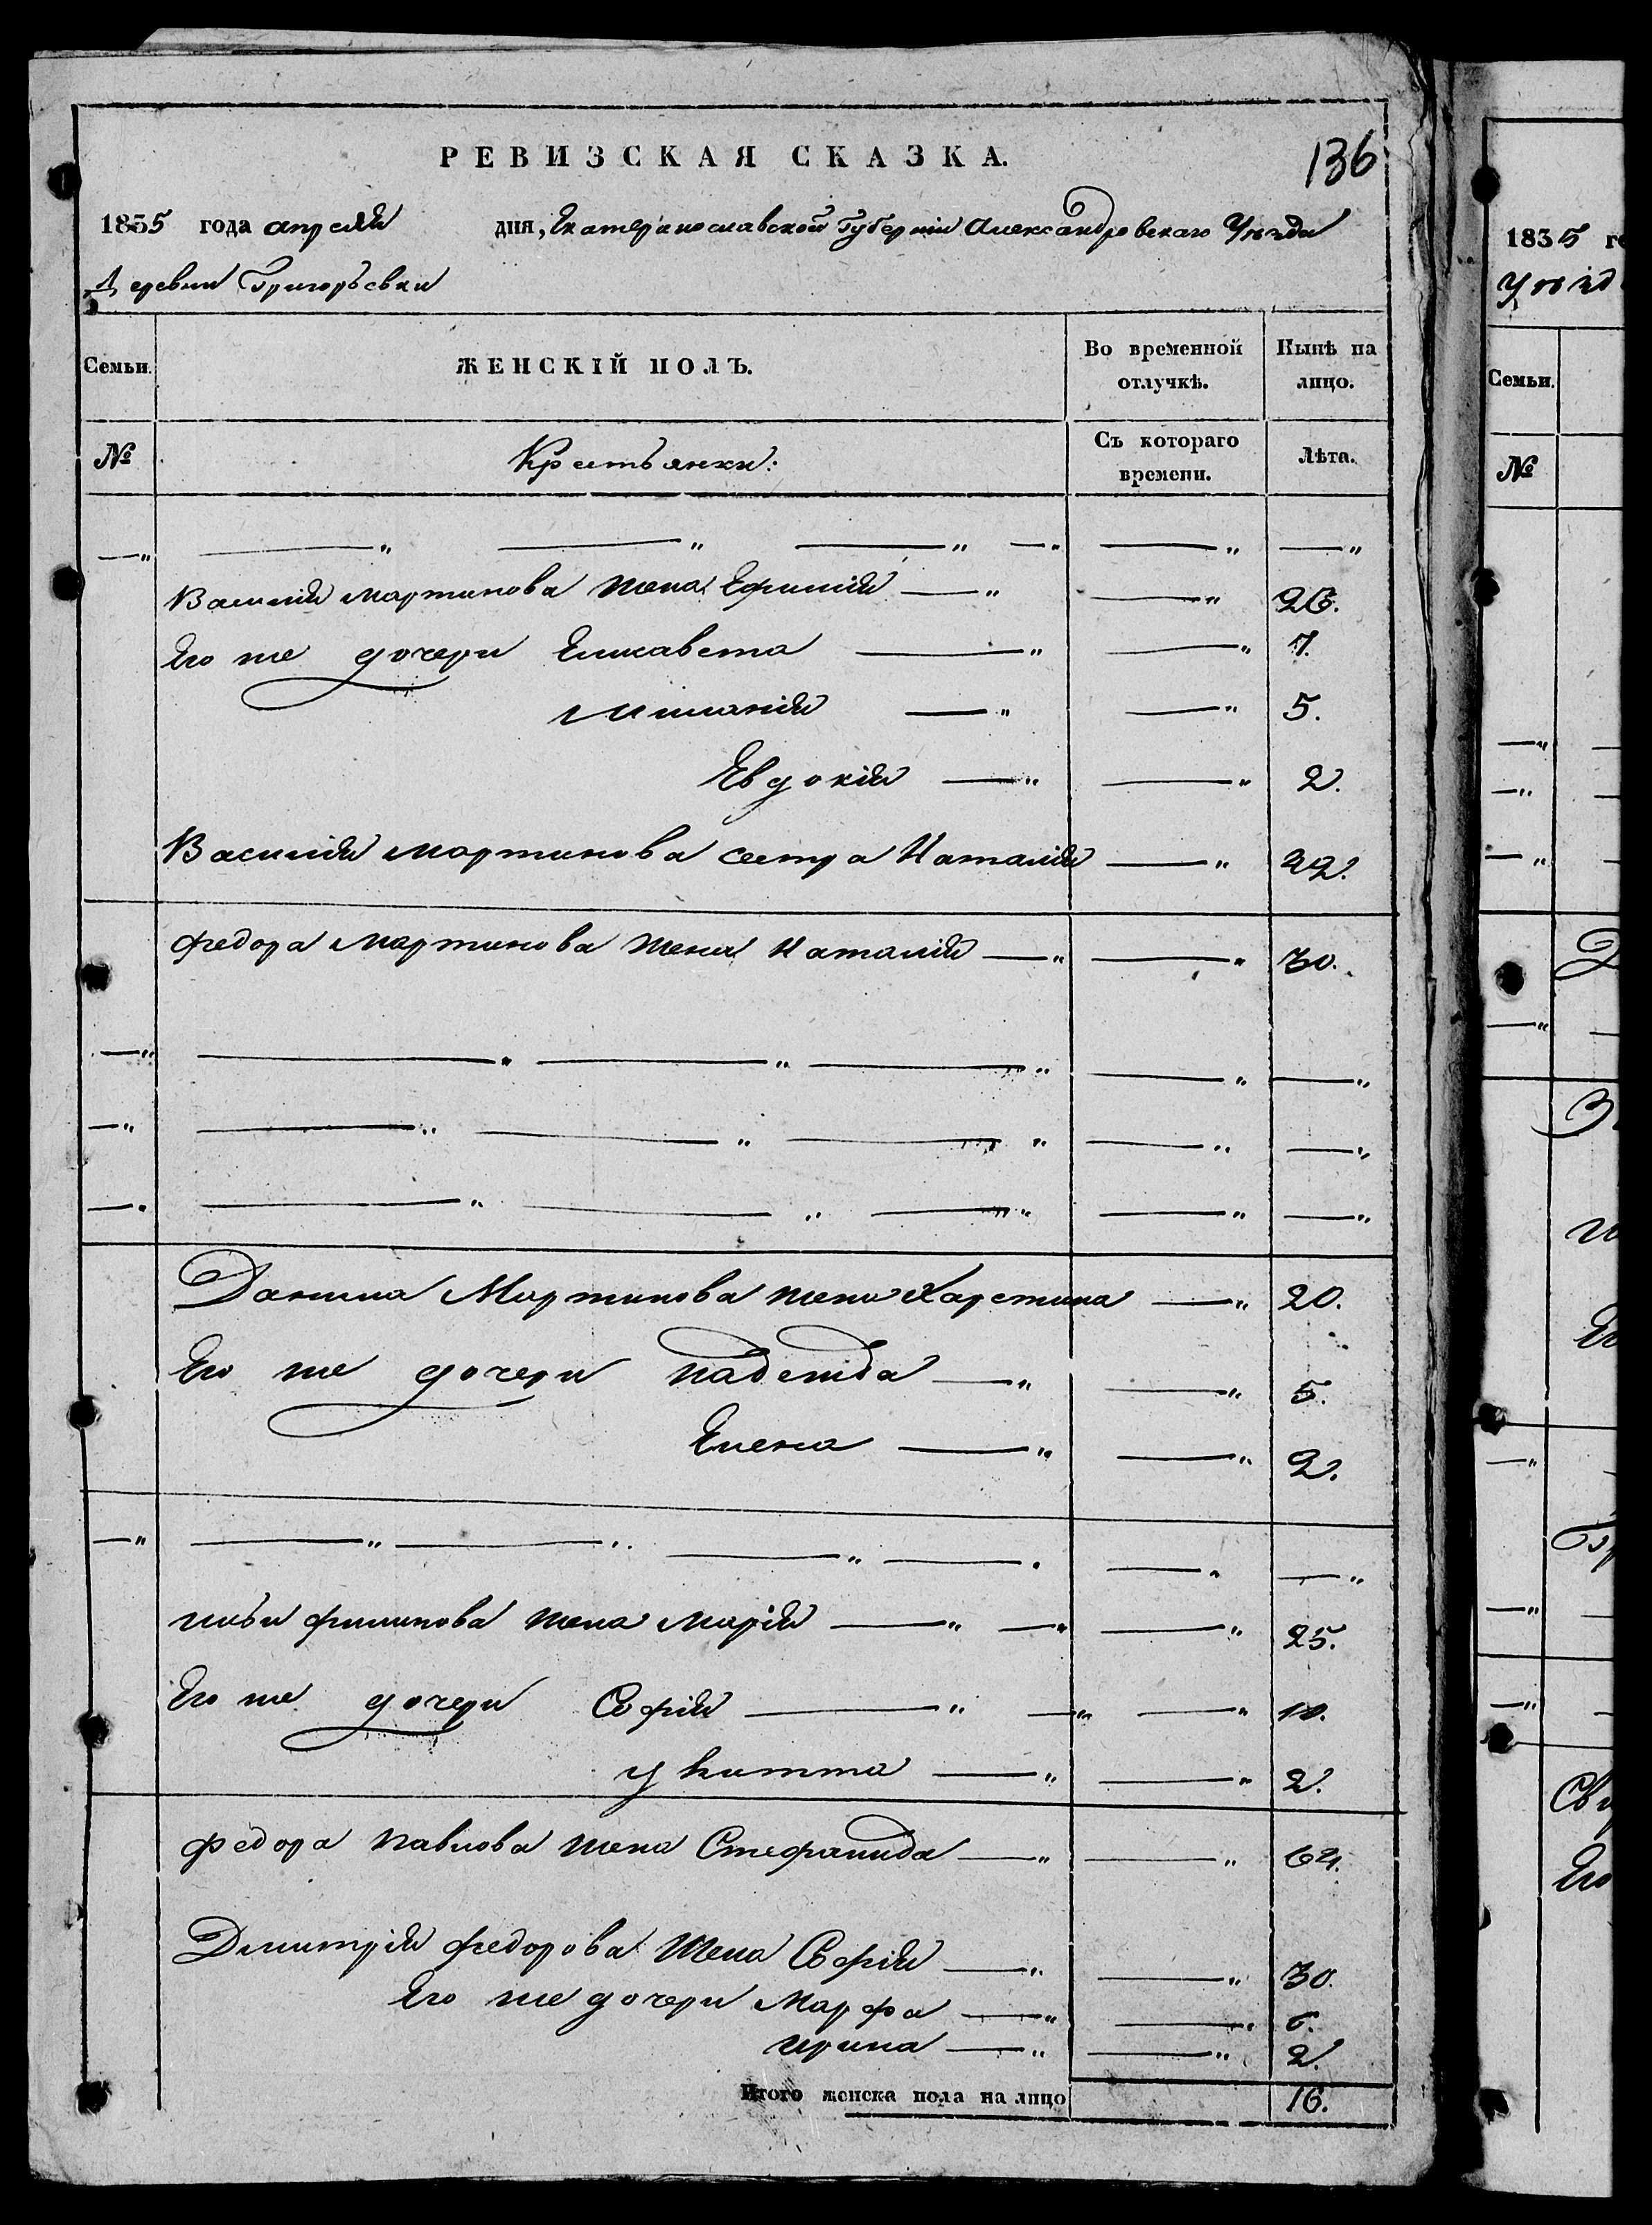 РЕВИЗСКАЯ СКАЗКА.
136
1835 года апреля дня, Екатеринославской Губерніи Александровскаго Уѣзда
Деревни Григорьевки
Семьи. ЖЕНСКІЙ ПОЛЪ. Во временной отлучкѣ. Нынѣ на лицо.
№ Крестьянки: Съ котораго времени. Лѣта.
—„ —„ —„ —„ —„ —„ —„
Василія Мартинова жена Ефимія —„ —„ 26.
Его же дочери Елисавета —„ —„ 7.
Меланія —„ —„ 5.
Евдокія —„ —„ 2.
Василія Мартинова сестра Наталія —„ 22.
Федора Мартинова жена Наталія —„ —„ 30.
—„ —„ —„ —„ —„ —„
—„ —„ —„ —„ —„ —„
—„ —„ —„ —„ —„ —„
Данила Мартинова жена Харстина —„ 20.
Его же дочери Надежда —„ —„ 5.
Елена —„ —„ 2.
—„ —„ —„ —„ —„ —„ —„
Филипова жена Марія —„ —„ —„ 25.
Его же дочери Софія —„ —„ —„ 10.
Улитта —„ —„ 2.
Федора Павлова жена Стефанида —„ —„ 64.
Дмитрія Федорова жена Софія —„ —„ 30.
Его же дочери Марфа —„ —„ 6.
Ирина —„ —„ 2.
Итого женска пола на лицо 16.
1835 го
Уѣзд
Семьи.
№
Ег
Его